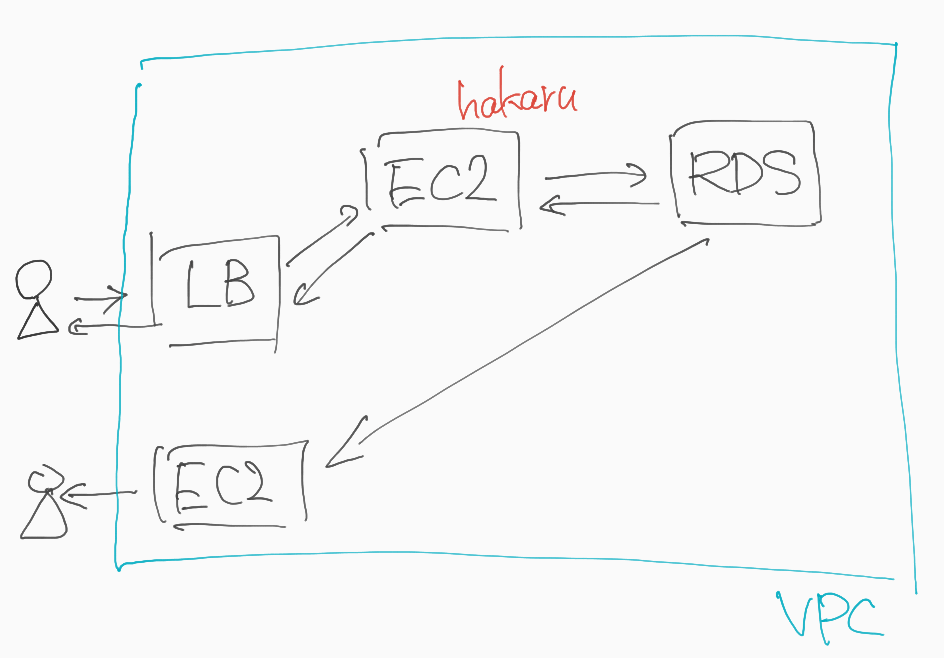 hakaru
EC2
RDS
LB
EC2
VPC